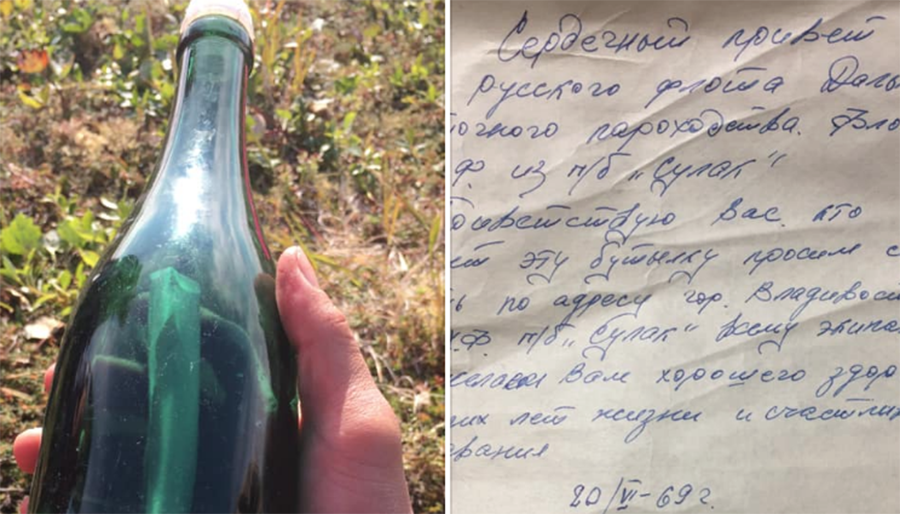 Сердечный привет
русского флота Даль
очного пароходства.
из п/б „Сулак“
Вас кто
ет эту бутылку просим с
ь по адресу гор. Владивост
п/б „Сулак“ всему экипа
Вам хорошего здор
их лет жизни и счастли
вания
20/VI-69 г.